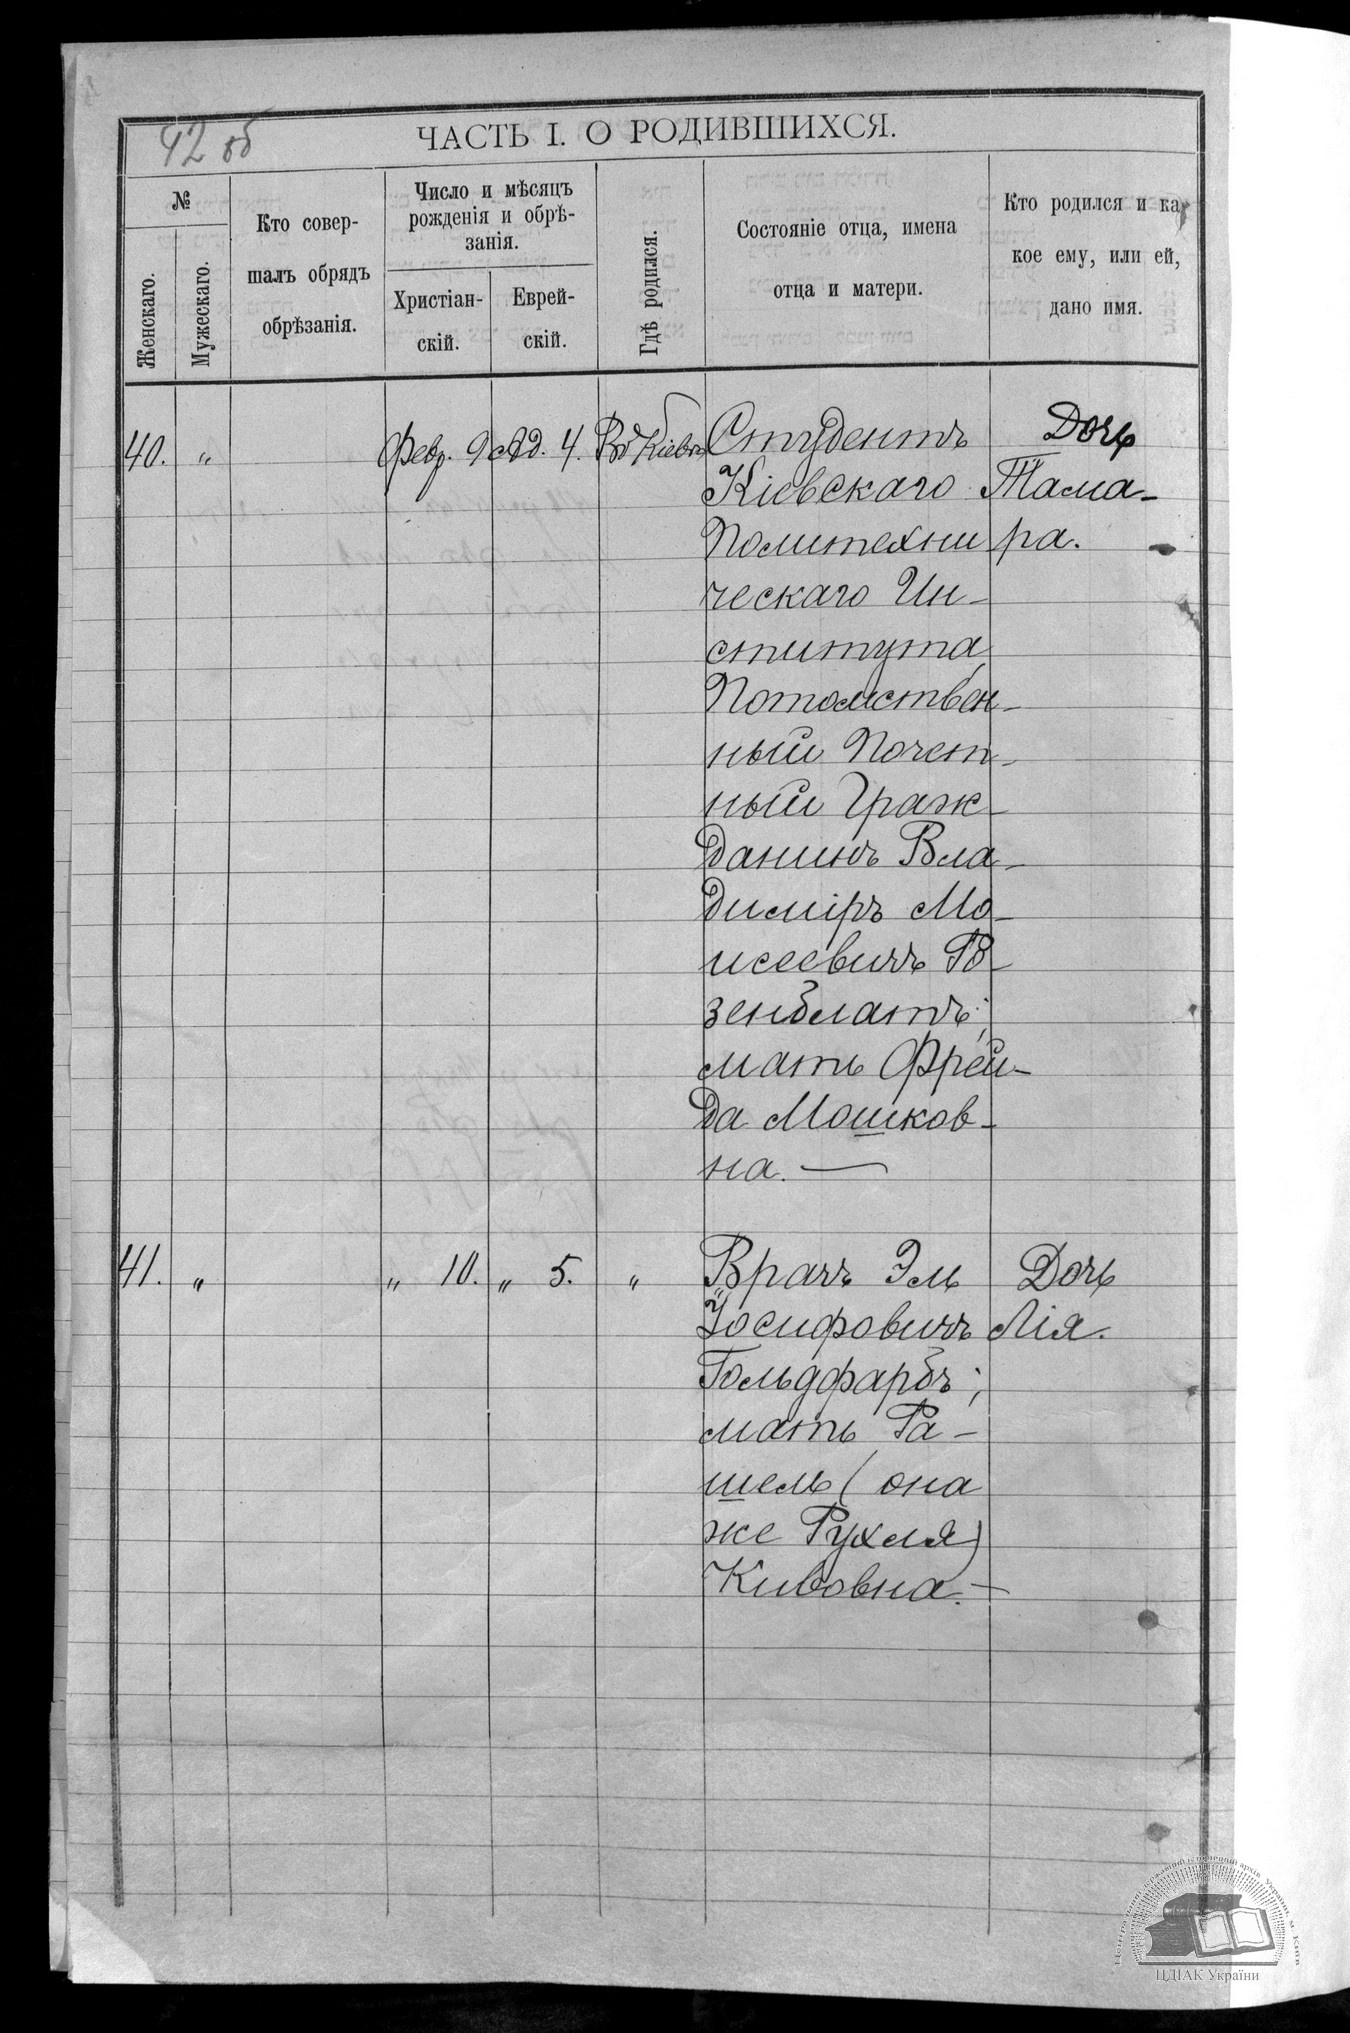 42 об
ЧАСТЬ I. О РОДИВШИХСЯ.
№
Женскаго.
Мужескаго.
Кто совер-
шалъ обрядъ
обрѣзанія.
Число и мѣсяцъ
рожденія и обрѣ-
занія.
Христіан-
скій.
Еврей-
скій.
Гдѣ родился.
Состояніе отца, имена
отца и матери.
Кто родился и ка-
кое ему, или ей,
дано имя.
40. „ Февр. 9 Ад. 4. Въ Кіевѣ Студентъ Дочь
Кіевскаго Тама-
Политехни ра.
ческаго Ин-
ститута,
Потомствен-
ный Почет-
ный Граж-
данинъ Вла-
диміръ Мо-
исеевичъ Ро-
зенблатъ;
мать Фрей-
да Мошков-
на. —
41. „ „ 10. „ 5. „ Врачъ Эль Дочь
Іосифовичъ Лія.
Гольдфарбъ;
мать Ра-
шель (она
же Рухля)
Кивовна. —
ЦДІАК України